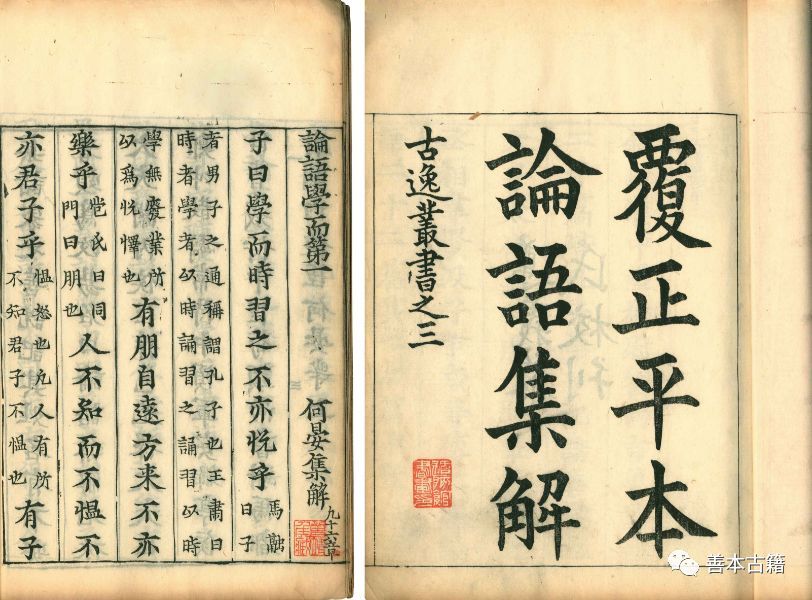 覆正平本
論語集解
古逸叢書之三
論語學而第一 何晏集解 凢十六章
子曰學而時習之不亦悅乎 馬融曰子
者男子之通稱謂孔子也王肅曰
時者學者以時誦習之誦習以時
學無廢業所以爲悅懌也 有朋自遠方来不亦
樂乎 苞氏曰同門曰朋也 人不知而不愠不
亦君子乎 愠怒也凢人有所不知君子不愠也 有子
善本古籍